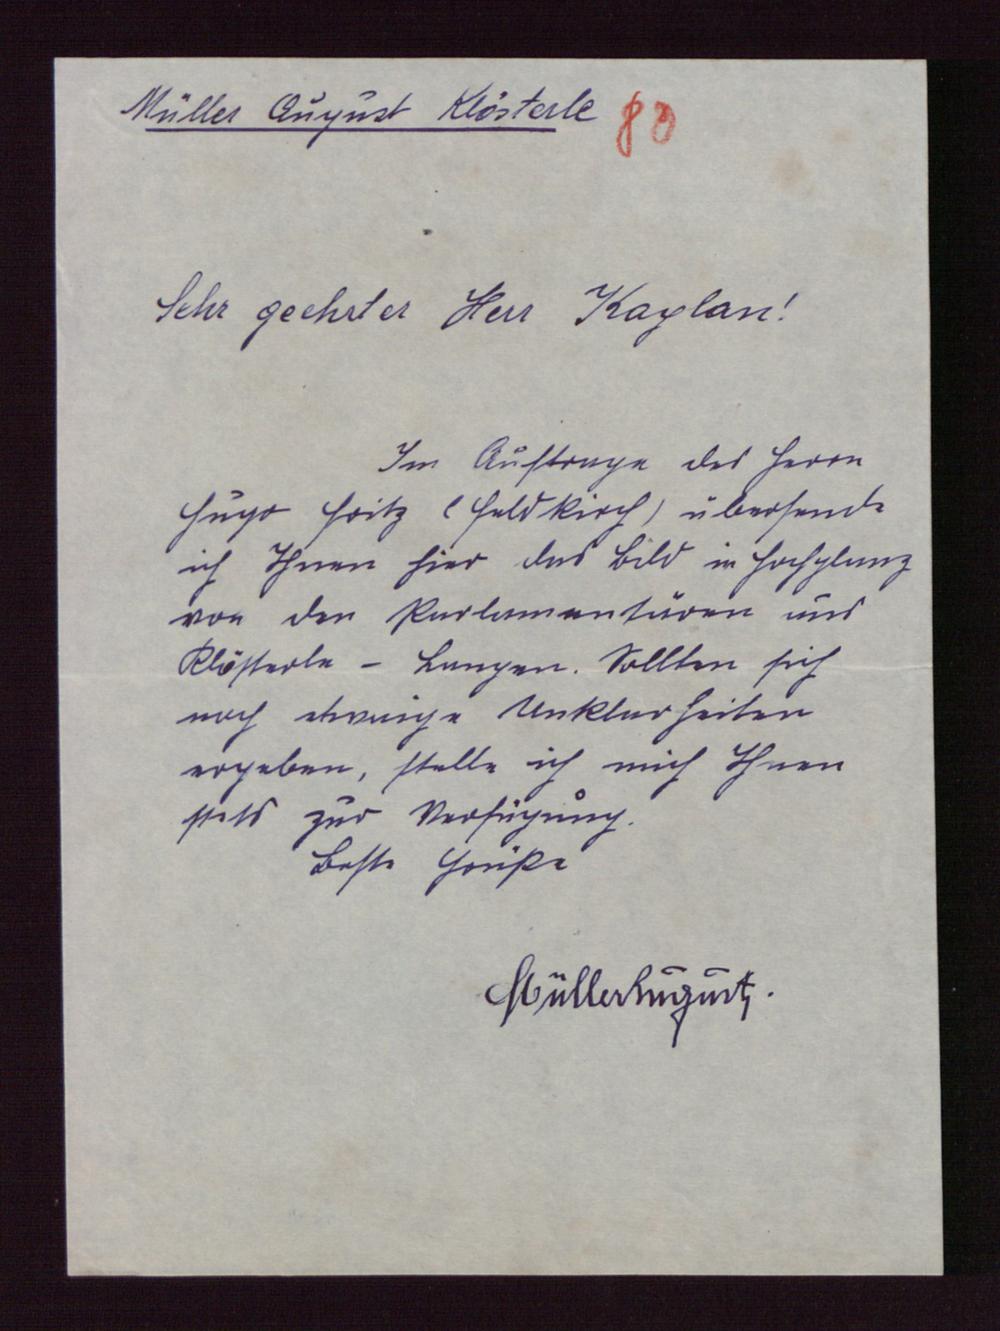 Müller August Klösterle 80
Sehr geehrter Herr Kaplan!
Im Auftrage des Herrn
Hugo Fritz (Feldkirch) übersende
ich Ihnen hier das Bild in Hochglanz
von den Parlamentären aus
Klösterle - Langen. Sollten sich
noch etwaige Unklarheiten
ergeben, stelle ich mich Ihnen
stets zur Verfügung.
Beste Grüße
Müller August.